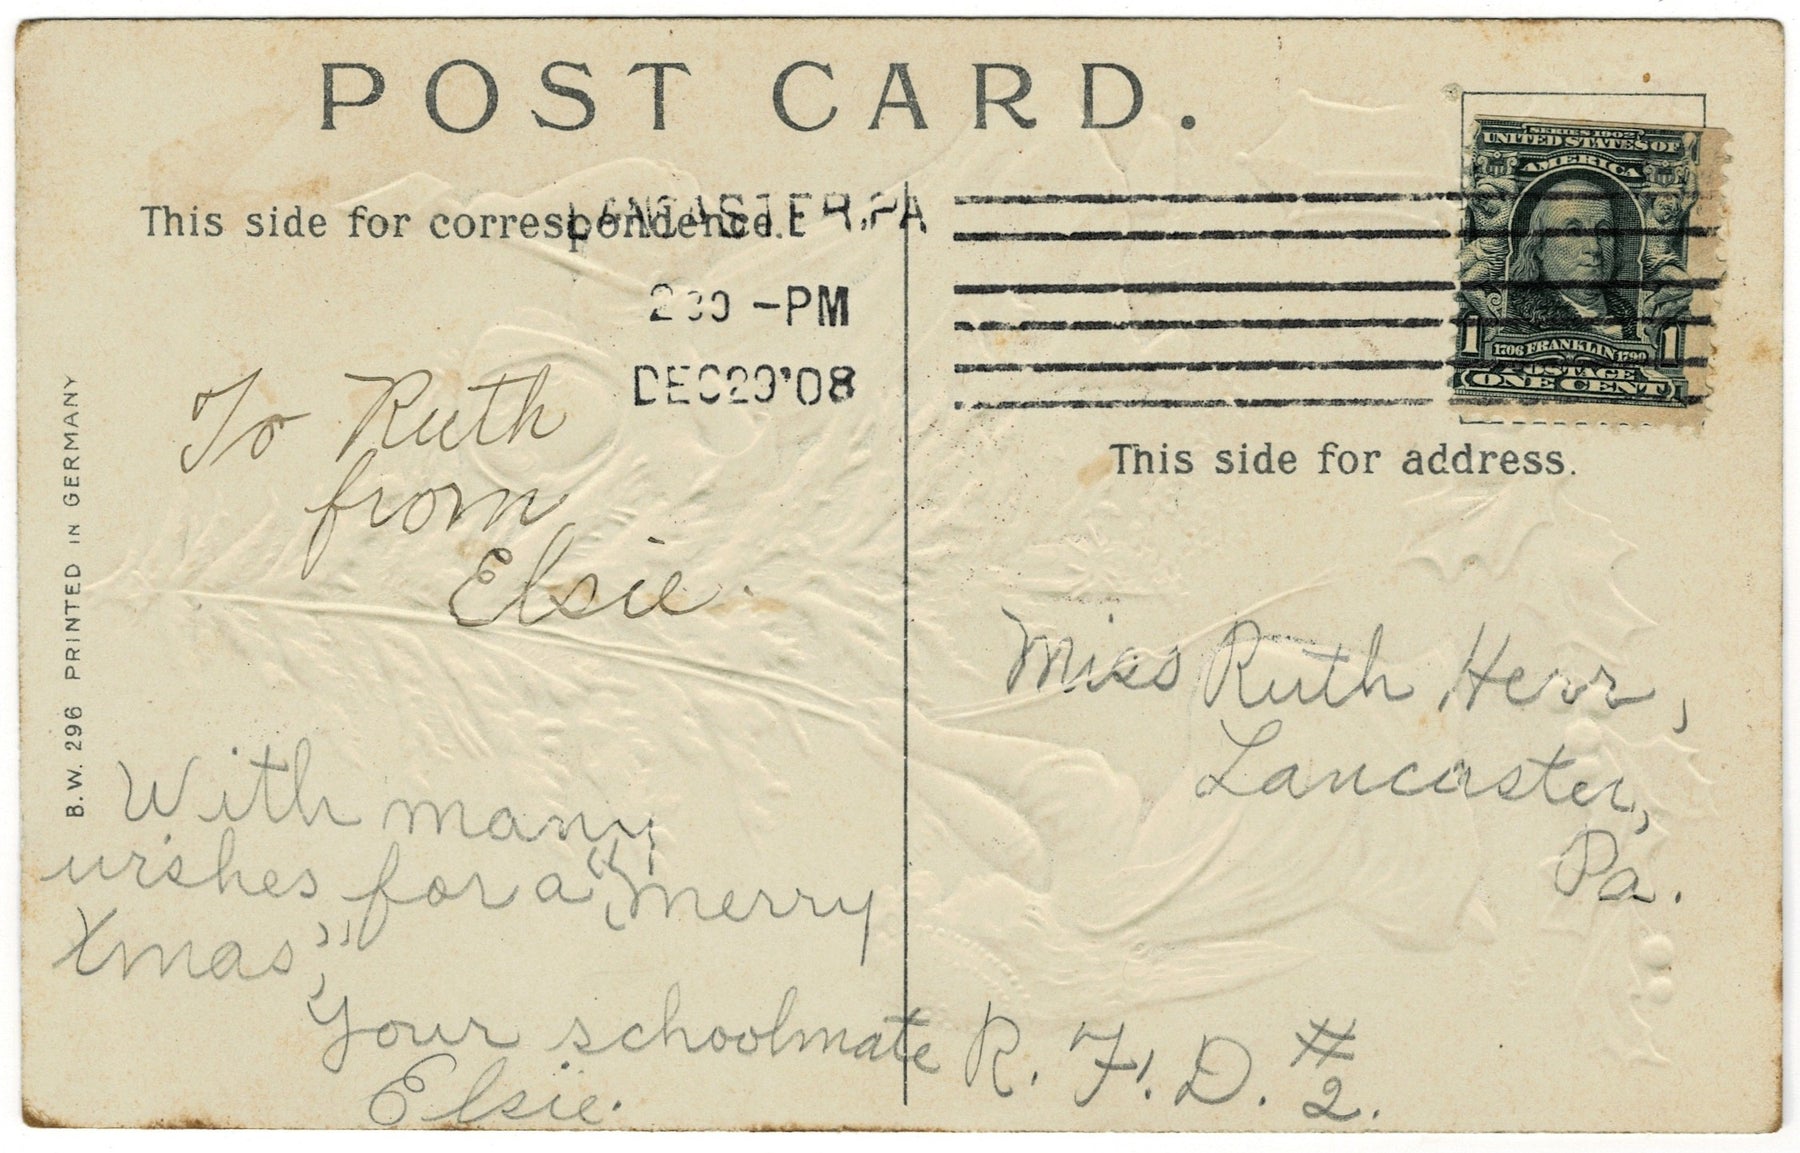 POST CARD.
This side for correspondence.
LANCASTER, PA
2 30 -PM
DEC 29 '08
SERIES 1902
UNITED STATES OF
AMERICA
1706 FRANKLIN 1790
1 1
POSTAGE
ONE CENT
This side for address.
B.W. 296 PRINTED IN GERMANY
To Ruth
from
Elsie.
With many
wishes for a "Merry
Xmas",
Your schoolmate
Elsie.
Miss Ruth Herr,
Lancaster,
Pa.
R. F. D. #
2.